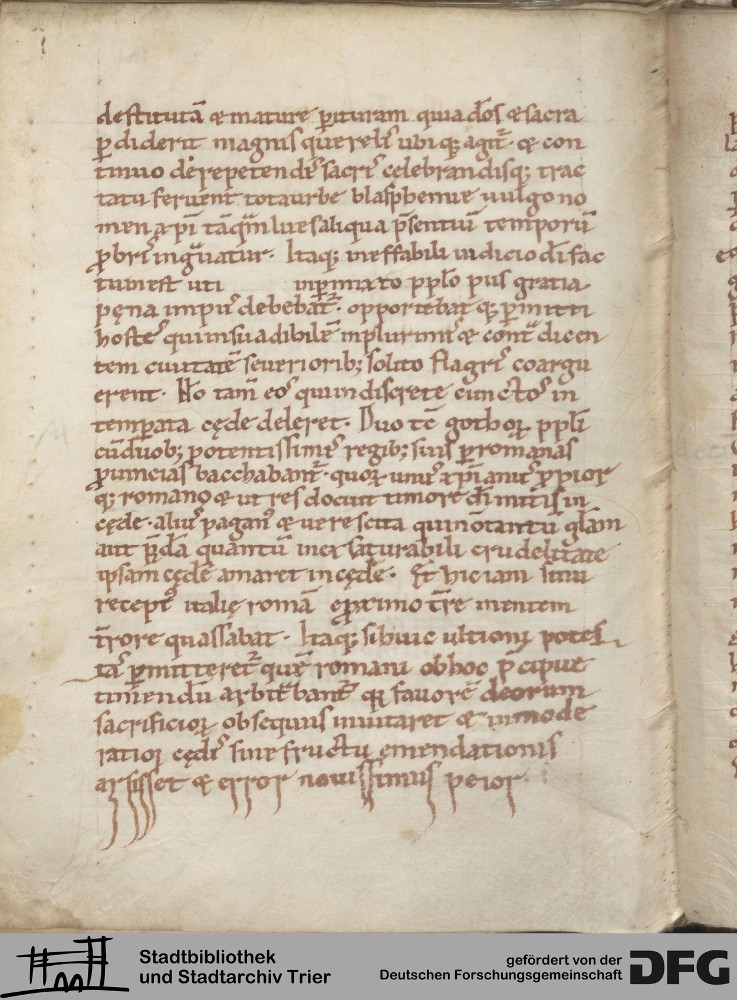 destitutā & mature p̄ituram quia dōs & sacra
ꝑdiderit magnis querelis ubiq; agit̄ · & con
tinuo de repetendis sacris celebrandisq; trac
tatur fervent tota urbe blasphemie uulgo no
men xp̄i tāquā lues aliqua p̄sentiū temporū
ꝓbris ingrauatur · Itaq; ineffabili iudicio dī fac
tum est uti in ꝑmixto pplō piis gratia
pęna impiis debebat̄ · opportebatq; ꝑmitti
hostes qui insuadibilē in plurimis & cont̄dicen
tem ciuitatē severiorib; solito flagris coargu
erent · Nō tam̄ eos qui indiscrete cunctos in
temꝑata cęde deleret · Duo tc̄ gothoꝝ pplī
cū duob; potentissimis regib; suis ꝑ romanas
ꝓuincias bacchabant̄ · quoꝝ unus xp̄ianus ꝓpior
q; romano & ut res docuit timore dī mitis in
cęde · alius paganus & uere scita qui nō tantū glām
aut p̄dā quantū inexsaturabili crudelitate
ipsam cędē amaret in cęde · Et hic iam sinu
receptus italię romā e ꝓximo tr̄e mentem
tr̄rore quassabat · Itaq; si huic ultionis potes
tas ꝑmitteret̄ quē romani ob hoc p̄cipue
timendū arbit̄bant̄ q; fauorē deorum
sacrificioꝝ obsequiis inuitaret & inmode
ratior cędis sine fructu emendationis
arsisset & error nouissimus peior
Stadtbibliothek
und Stadtarchiv Trier
gefördert von der
Deutschen Forschungsgemeinschaft
DFG